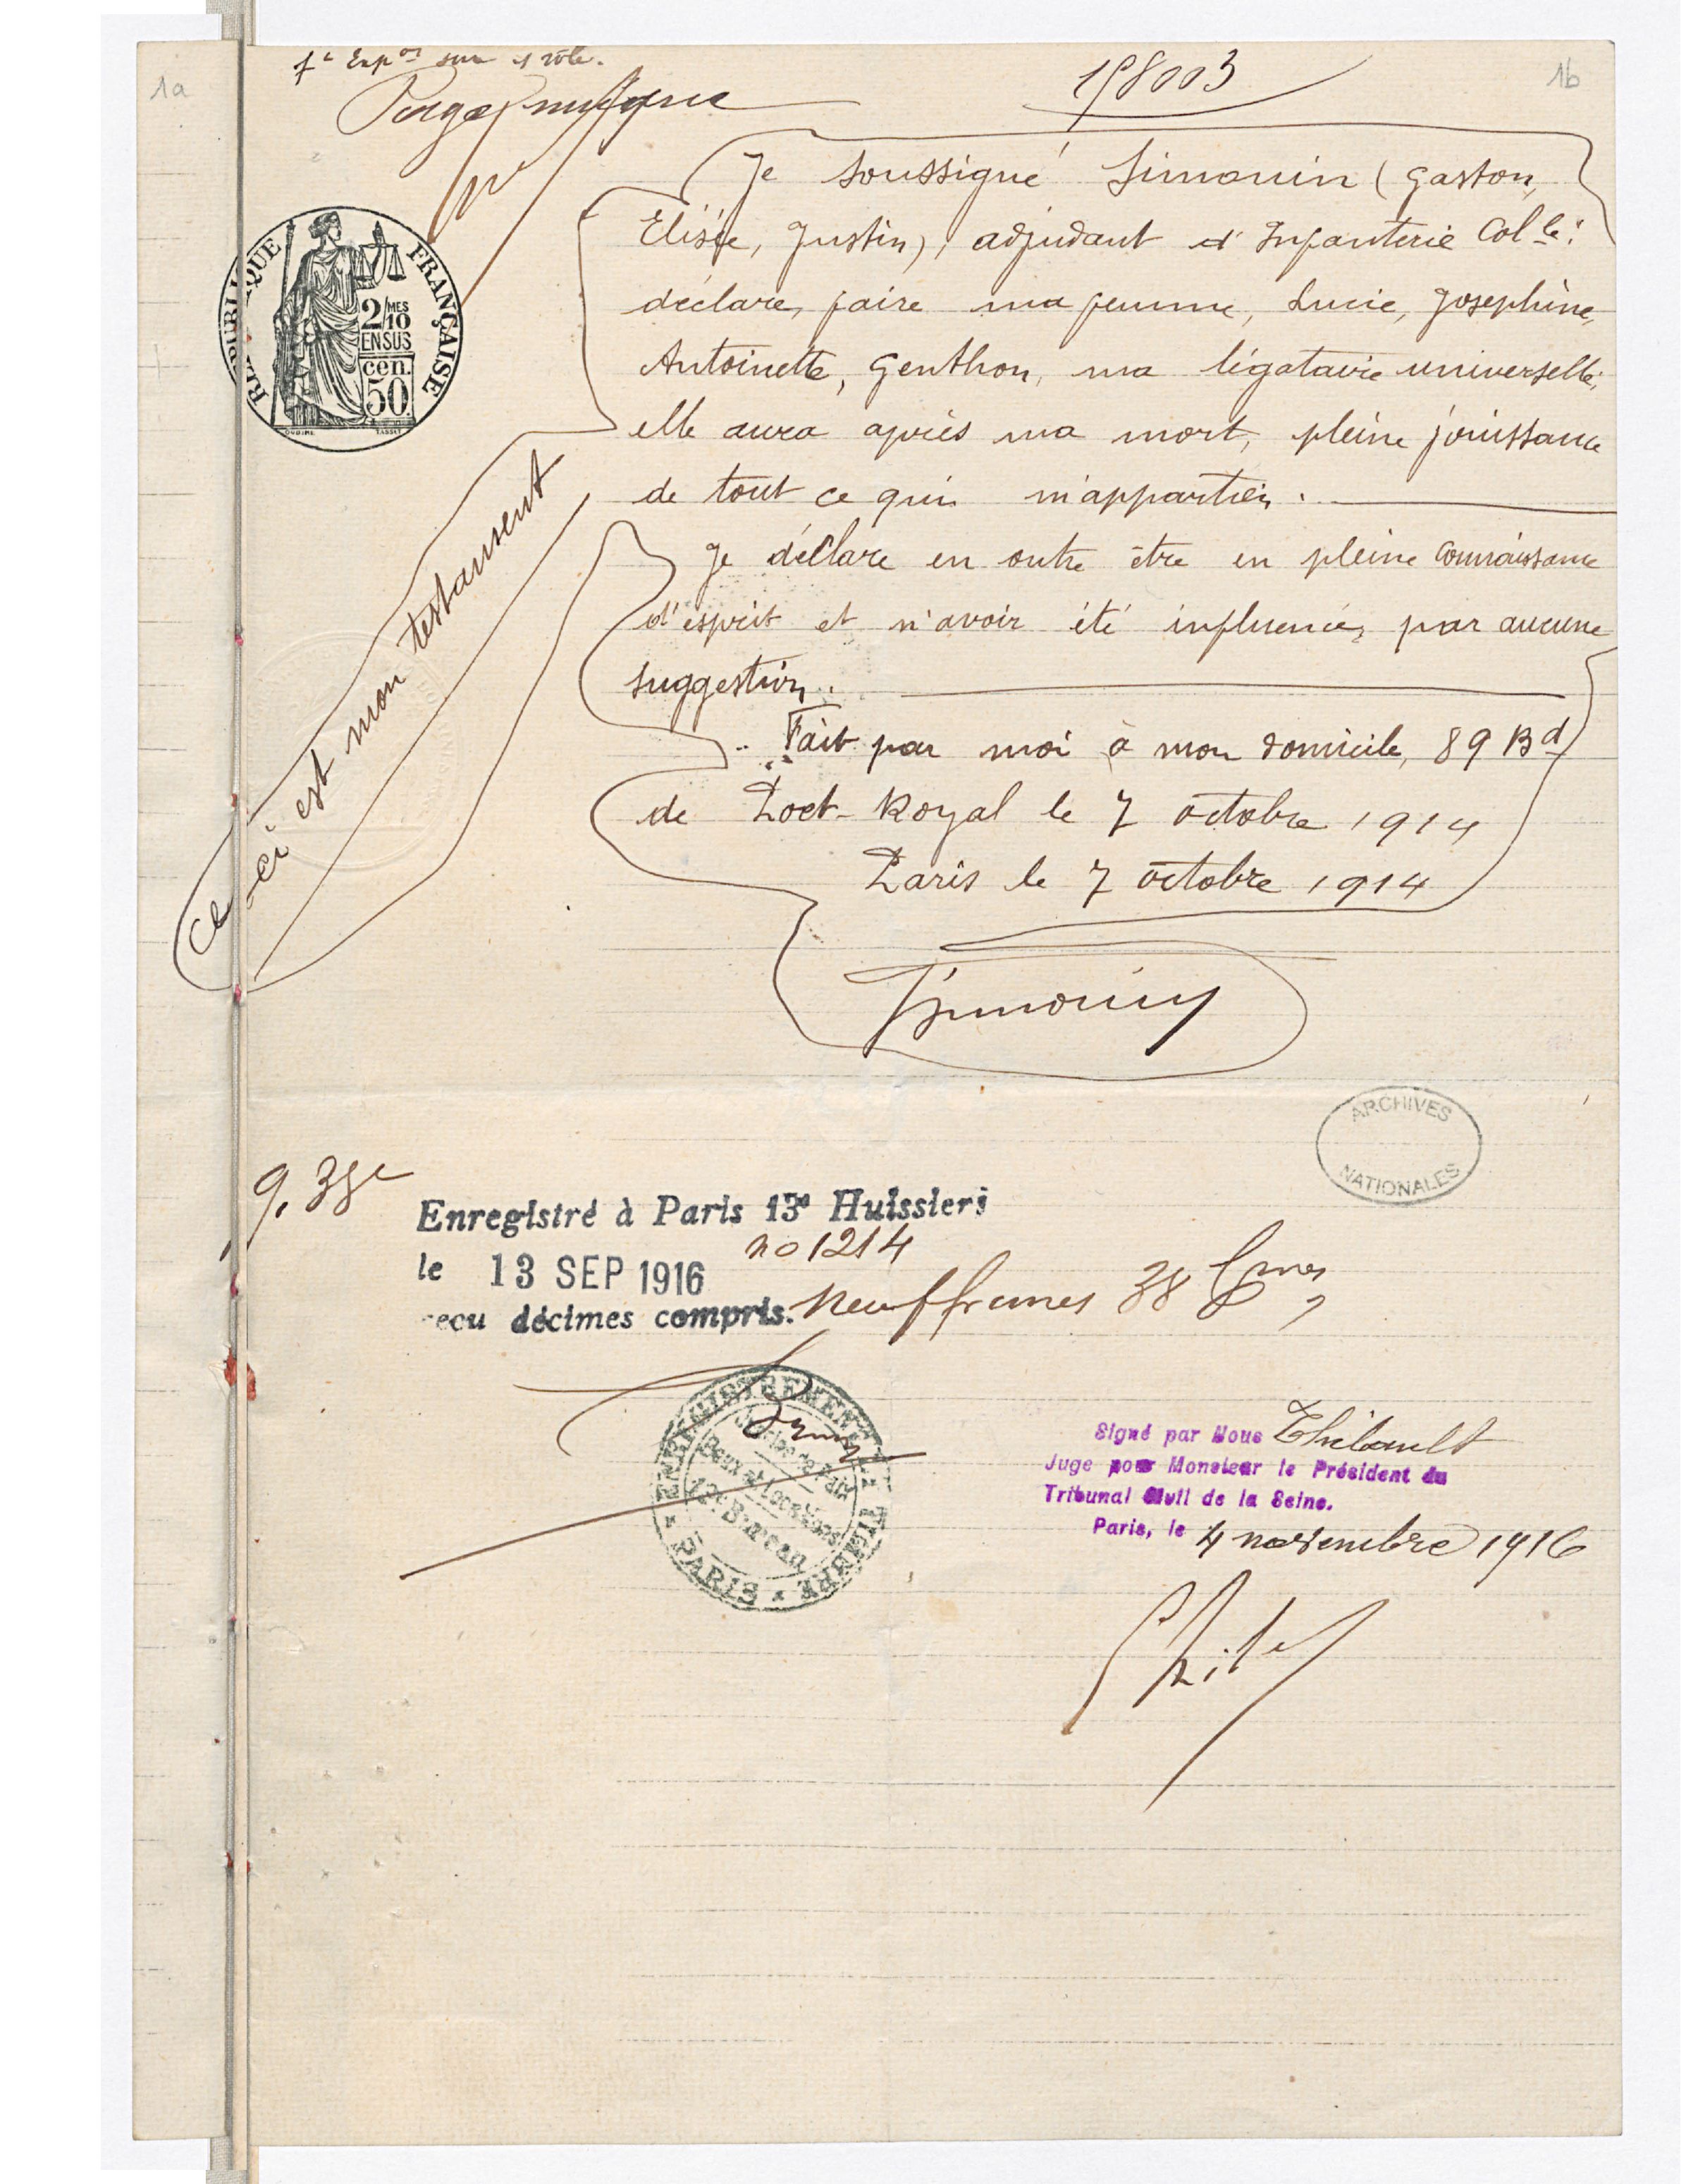 1a
1b
1e Expon sur 1 rôle.
198003
RÉPUBLIQUE FRANÇAISE
2/10 MES
EN SUS
cen.
50
Je soussigné Simonin (Gaston,
Elisée, Justin), adjudant d'Infanterie Colle:
déclare, faire ma femme, Lucie, Josephine,
Antoinette, Genthon, ma légataire universelle,
elle aura après ma mort, pleine jouissance
de tout ce qui m'appartien.
Je déclare en outre être en pleine connaissance
d'esprit et n'avoir été influencé, par aucune
suggestion.
Fait par moi à mon domicile, 89 Bd
de Port-Royal le 7 octobre 1914
Paris le 7 octobre 1914
Simonin
ce-ci est mon testament
ARCHIVES
NATIONALES
9,38c
Enregistré à Paris 13e Huissiers
le 13 SEP 1916 no 1214
recu décimes compris. Neuf francs 38 Cmes
ENREGISTREMENT TIMBRE
Baux et Locations
13e Bureau
PARIS
Signé par Nous Thibault
Juge pour Monsieur le Président du
Tribunal Civil de la Seine.
Paris, le 4 novembre 1916